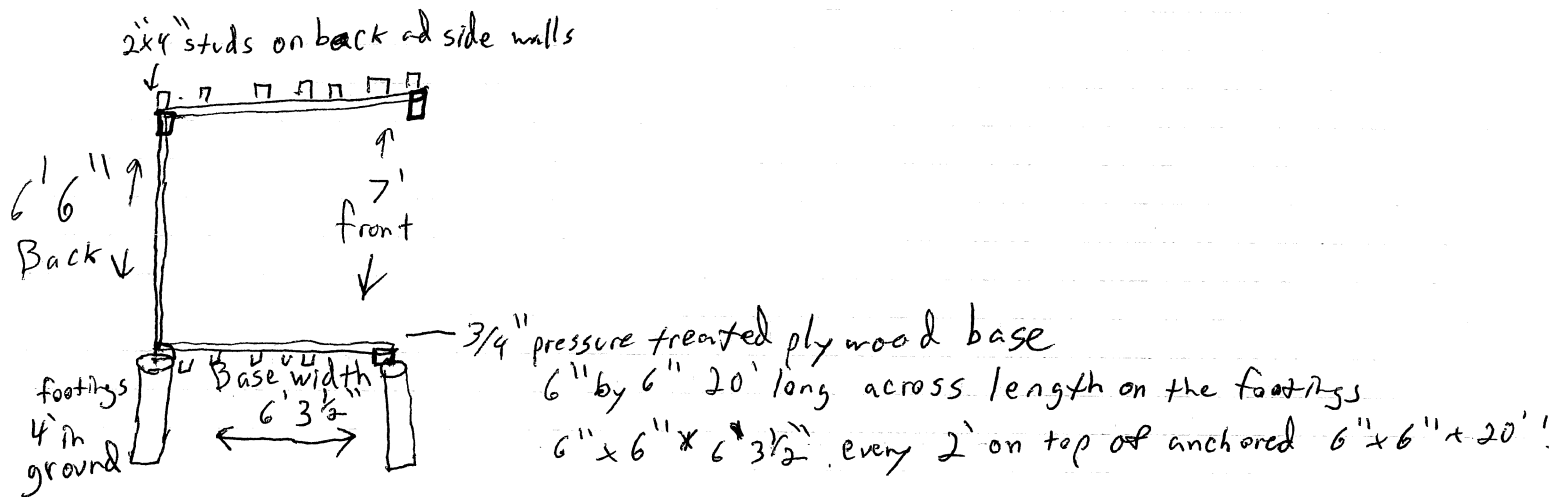 2"x4" studs on back ad side walls
6'6"
Back
7'
front
3/4" pressure treated plywood base
6" by 6" 20' long across length on the footings
6" x 6" x 6' 3 1/2" every 2' on top of anchored 6" x 6" x 20'
Base width
6' 3 1/2"
footings
4' in
ground